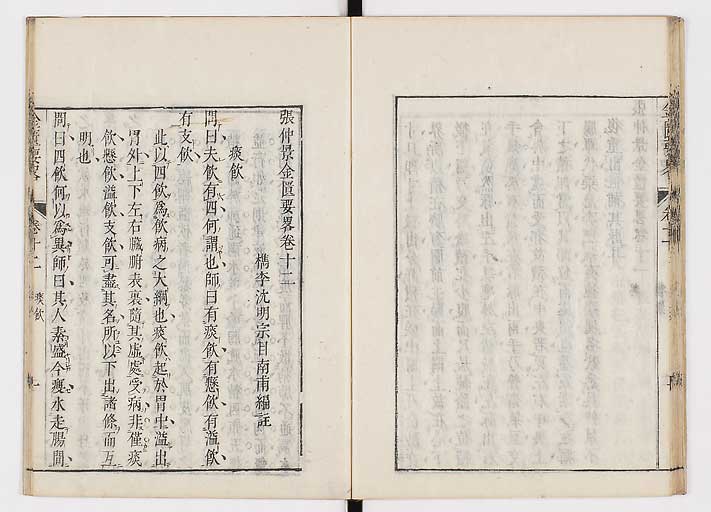 張仲景金匱要畧卷十二
檇李沈明宗目南甫編註
痰飲
問曰夫飲有四何謂也師曰有痰飲有懸飲有溢飲
有支飲
此以四飲爲飲病之大綱也痰飲起於胃中溢出
胃外上下左右臟腑表裏隨其虛處受病非僅痰
飲懸飲溢飲支飲可盡其名所以下出諸條而互
明也
問曰四飲何以爲異師曰其人素盛今瘦水走腸間
金匱要畧
卷十二
痰飲
一